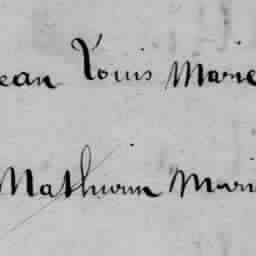 ean Louis Marie
Mathurin Mari